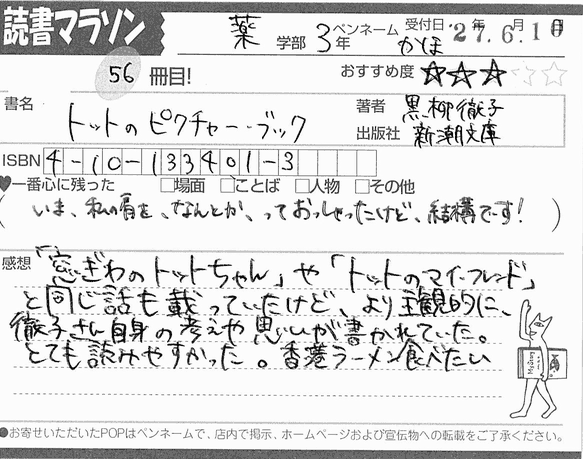 読書マラソン
薬 学部 3年 ペンネーム かほ 受付日 27.6.10
56 冊目! おすすめ度 ★★★☆☆
書名 トットのピクチャー・ブック
著者 黒柳徹子
出版社 新潮文庫
ISBN 4-10-133401-3
♥一番心に残った □場面 □ことば □人物 □その他
(いま、私の肩を、なんとか、っておっしゃったけど、結構でーす!)
感想 「窓ぎわのトットちゃん」や「トットのマイ・フレンド」
と同じ話も載っていたけど、より主観的に、
徹子さん自身の考えや思いが書かれていた。
とても読みやすかった。香港ラーメン食べたい
●お寄せいただいたPOPはペンネームで、店内で掲示、ホームページおよび宣伝物への転載をご了承ください。